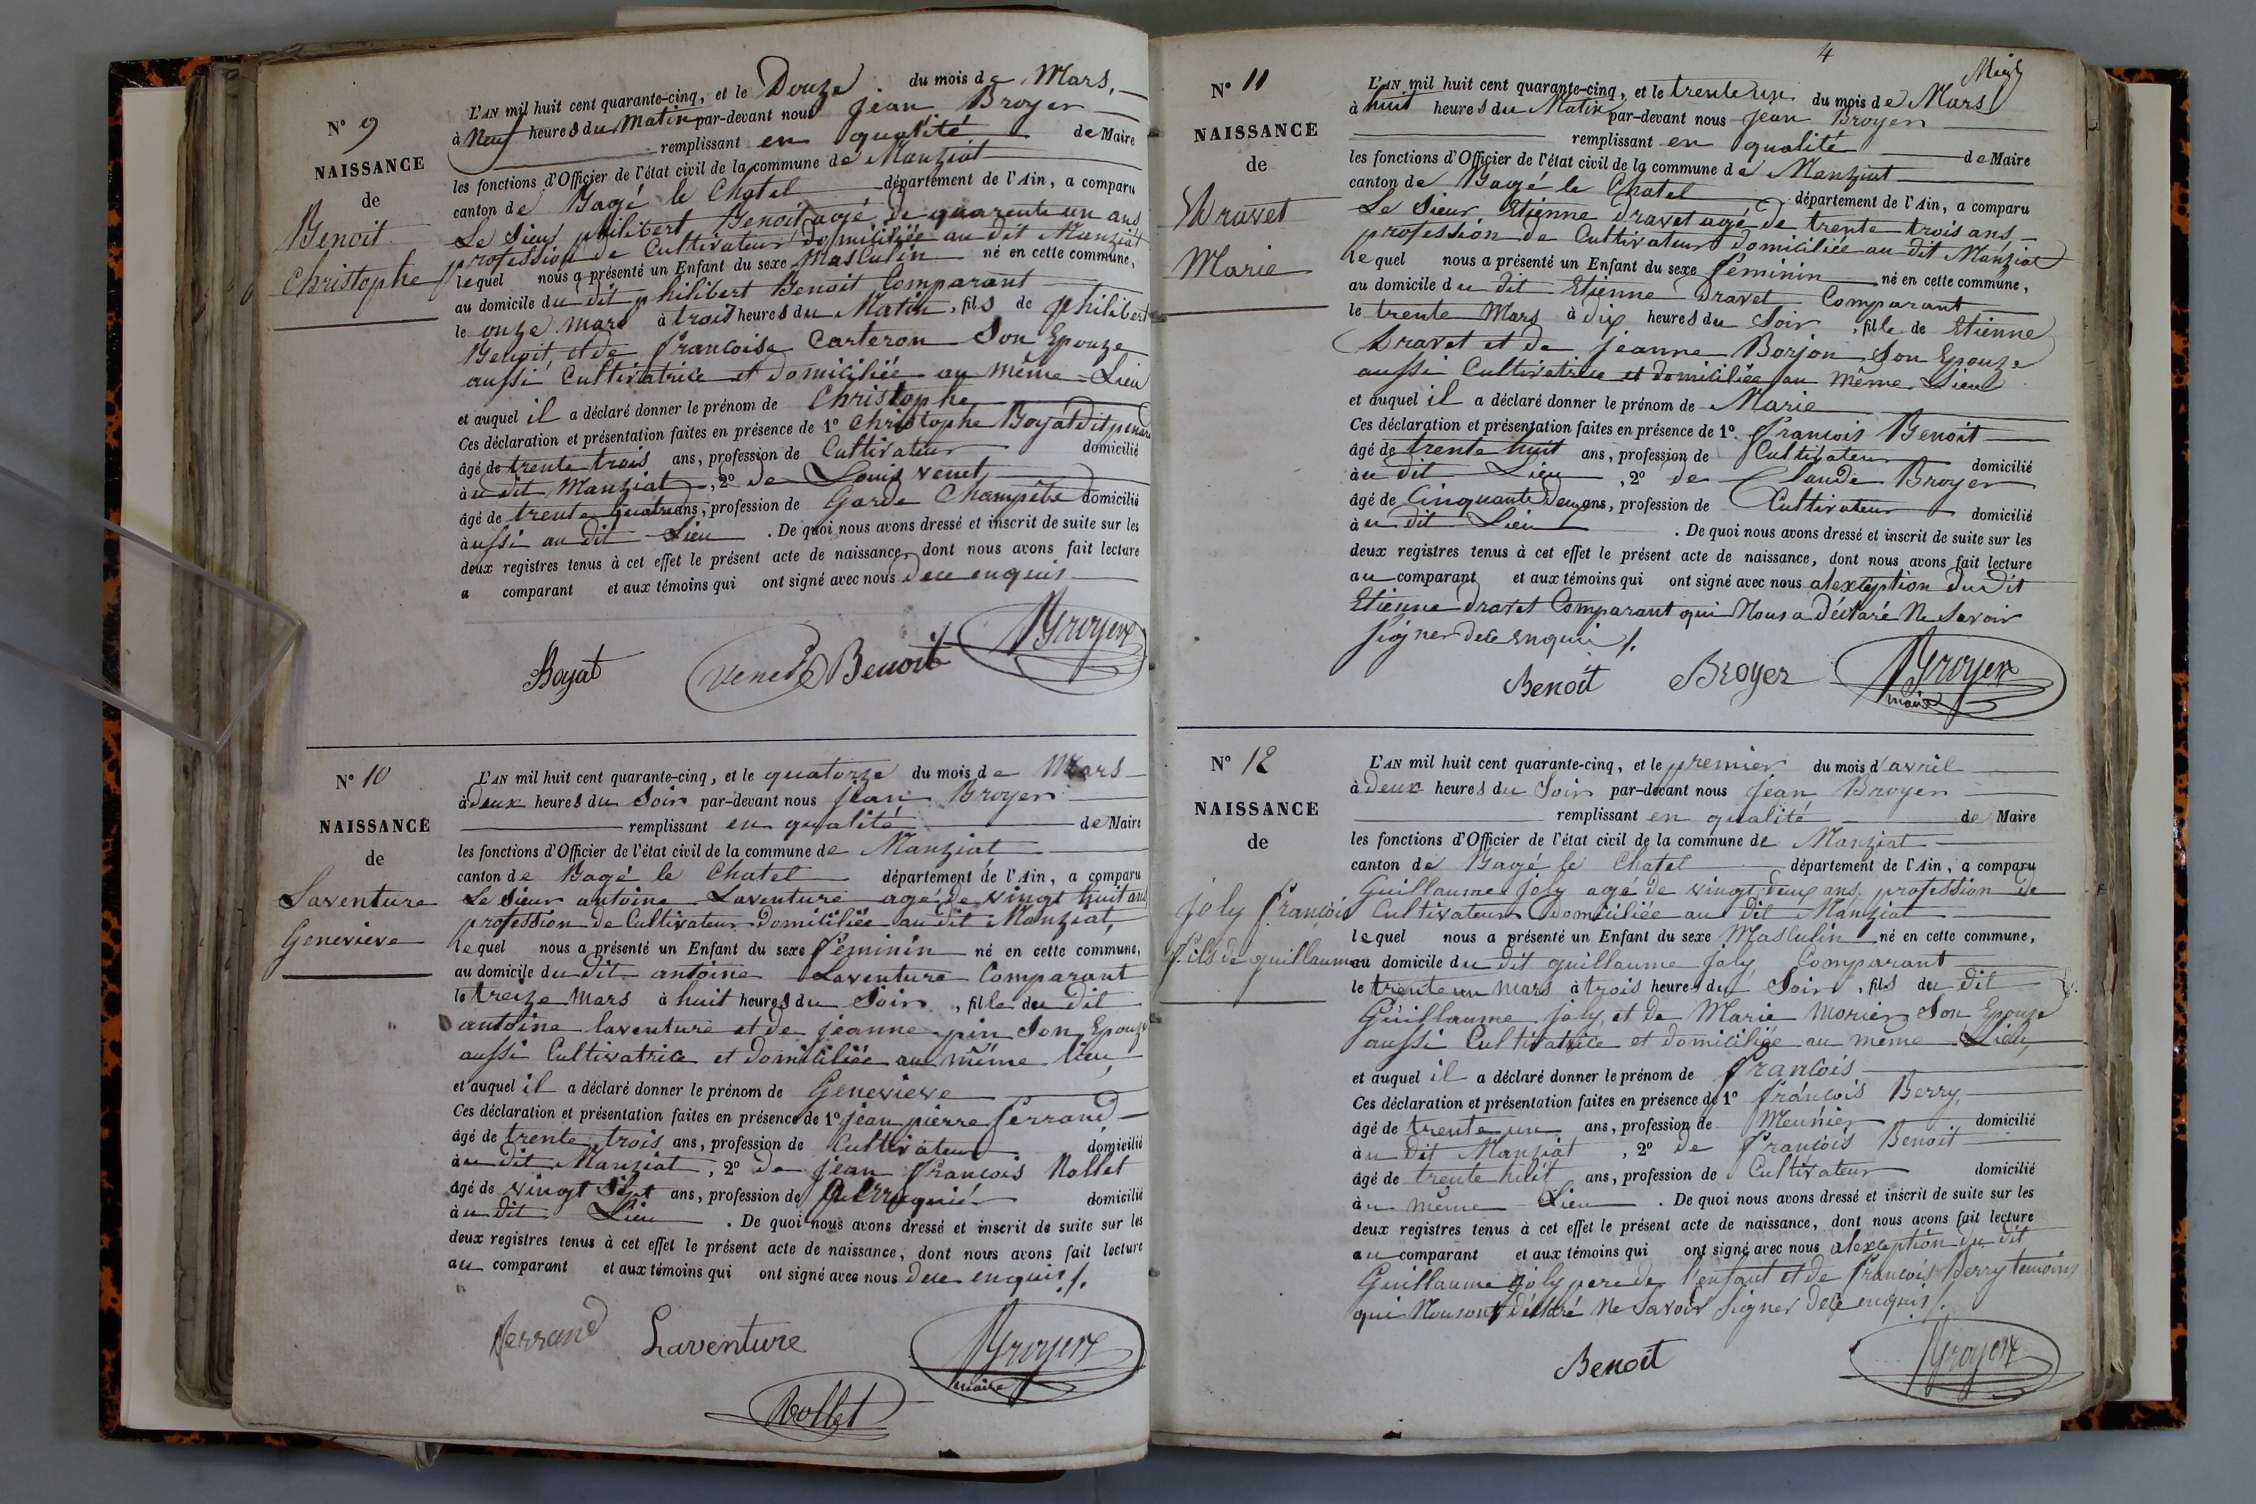 N° 9
NAISSANCE
de
Benoit
Christophe
L'AN mil huit cent quarante-cinq, et le Douze du mois de Mars,
à Neuf heures du Matin par-devant nous jean Broyer
remplissant en qualité de Maire
les fonctions d'Officier de l'état civil de la commune de Manziat
canton de Bagé le Chatel département de l'Ain, a comparu
Le Sieur philibert Benoit agé de quarente un ans
profession de Cultivateur domiciliée au dit Manziat
lequel nous a présenté un Enfant du sexe Masculin né en cette commune,
au domicile du dit philibert Benoit Comparant
le onze mars à trois heures du Matin, fils de philibert
Benoit, et de francoise Carteron Son Epouze
aussi Cultivatrice et domiciliée au même Lieu
et auquel il a déclaré donner le prénom de Christophe
Ces déclaration et présentation faites en présence de 1° Christophe Boyat dit
âgé de trente trois ans, profession de Cultivateur domicilié
à u dit Manziat, 2° de Louis venet
âgé de trente quatre ans, profession de Garde Champêtre domicilié
à ussi au dit Lieu. De quoi nous avons dressé et inscrit de suite sur les
deux registres tenus à cet effet le présent acte de naissance, dont nous avons fait lecture
a comparant et aux témoins qui ont signé avec nous dece enquis
Boyat venet Benoit Broyer
N° 10
NAISSANCE
de
Laventure
Genevieve
L'AN mil huit cent quarante-cinq, et le quatorze du mois de Mars
à deux heures du Soir par-devant nous jean Broyer
remplissant en qualité de Maire
les fonctions d'Officier de l'état civil de la commune de Manziat
canton de Bagé le Chatel département de l'Ain, a comparu
Le Sieur antoine Laventure agé de vingt huit ans
profession de Cultivateur domiciliée au dit Manziat,
lequel nous a présenté un Enfant du sexe féminin né en cette commune,
au domicile du dit antoine Laventure Comparant
le treize Mars à huit heures du Soir, fille du dit
antoine laventure et de jeanne pin Son Epouze
aussi Cultivatrice et domiciliée au même lieu,
et auquel il a déclaré donner le prénom de Genevieve
Ces déclaration et présentation faites en présence de 1° jean pierre ferrand
âgé de trente trois ans, profession de Cultivateur domicilié
à u dit Manziat, 2° de jean francois Rollet
âgé de vingt Sept ans, profession de perruquié domicilié
à u dit Lieu. De quoi nous avons dressé et inscrit de suite sur les
deux registres tenus à cet effet le présent acte de naissance, dont nous avons fait lecture
au comparant et aux témoins qui ont signé avec nous dece enquis /.
ferrand Laventure Broyer
maire
Rollet
4
N° 11
NAISSANCE
de
Dravet
Marie
L'AN mil huit cent quarante-cinq, et le trente un du mois de Mars
à huit heures du Matin par-devant nous jean Broyer
remplissant en qualité de Maire
les fonctions d'Officier de l'état civil de la commune de Manziat
canton de Bagé le Chatel département de l'Ain, a comparu
Le Sieur Etienne dravet agé de trente trois ans
profession de Cultivateur domiciliée au dit Manziat
lequel nous a présenté un Enfant du sexe féminin né en cette commune,
au domicile du dit Etienne Dravet Comparant
le trente Mars à dix heures du Soir, fille de Etienne
Dravet et de jeanne Borjon Son Epouze
aussi Cultivatrice et domiciliée au même Lieu
et auquel il a déclaré donner le prénom de Marie
Ces déclaration et présentation faites en présence de 1° francois Benoit
âgé de trente huit ans, profession de Cultivateur domicilié
à u dit Lieu, 2° de Claude Broyer
âgé de Cinquante deux ans, profession de Cultivateur domicilié
à u dit Lieu. De quoi nous avons dressé et inscrit de suite sur les
deux registres tenus à cet effet le présent acte de naissance, dont nous avons fait lecture
au comparant et aux témoins qui ont signé avec nous alexception du dit
Etienne dravet Comparant qui Nous a déclaré Ne Savoir
signer dece enqui /.
Benoit Broyer Broyer
maire
N° 12
NAISSANCE
de
joly francois
fils de guillaume
L'AN mil huit cent quarante-cinq, et le premier du mois d'avril
à deux heures du Soir par-devant nous jean Broyer
remplissant en qualité de Maire
les fonctions d'Officier de l'état civil de la commune de Manziat
canton de Bagé le Chatel département de l'Ain, a comparu
Guillaume joly agé de vingt deux ans, profession de
Cultivateur domiciliée au dit Manziat
lequel nous a présenté un Enfant du sexe Masculin né en cette commune,
au domicile du dit guillaume joly Comparant
le trente un mars à trois heures du Soir, fils du dit
Guillaume joly, et de Marie Morier Son Epouze
aussi Cultivatrice et domiciliée au même Lieu,
et auquel il a déclaré donner le prénom de francois
Ces déclaration et présentation faites en présence de 1° francois Berry,
âgé de trente un ans, profession de Meunier domicilié
à u dit Manziat, 2° de francois Benoit
âgé de trente huit ans, profession de Cultivateur domicilié
à u même Lieu. De quoi nous avons dressé et inscrit de suite sur les
deux registres tenus à cet effet le présent acte de naissance, dont nous avons fait lecture
au comparant et aux témoins qui ont signé avec nous alexception du dit
Guillaume joly pere de l'enfant et de francois Berry temoins
qui Nous ont déclaré Ne Savoir signer dece enquis /.
Benoit Broyer